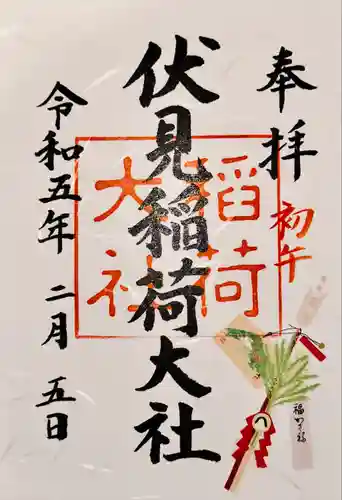 奉拝
初午
伏見稲荷大社
稲荷
大社
令和五年 二月 五日